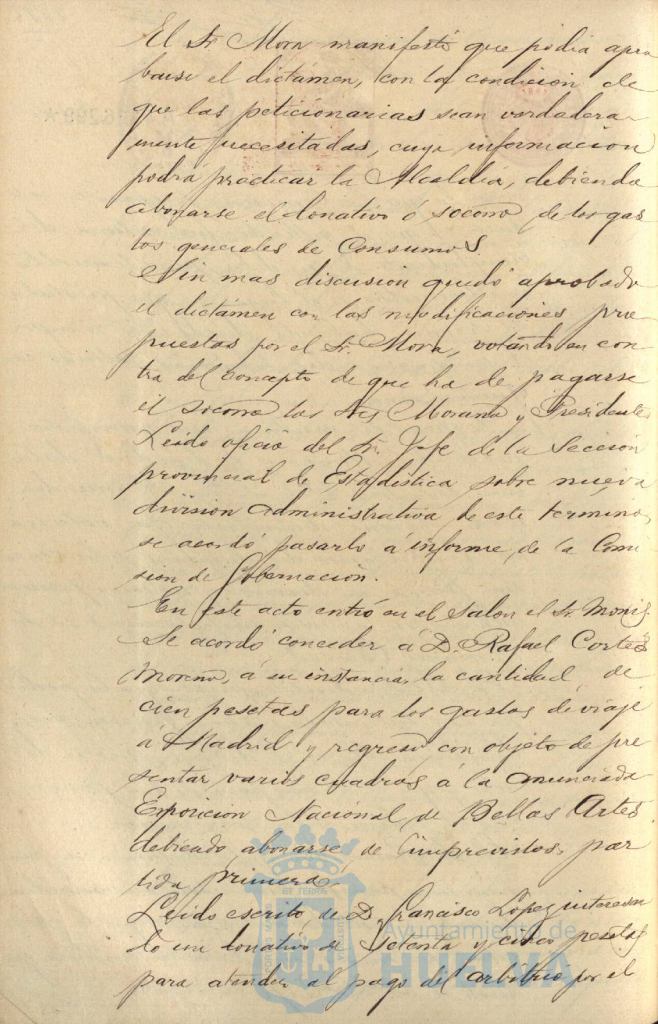 El Sr. Mora manifestó que podia apro
barse el dictámen, con la condicion de
que las peticionarias sean verdadera-
mente necesitadas, cuya informacion
podrá practicar la Alcaldia, debiendo
abonarse el donativo ó socorro de los gas
tos generales de Consumos.
Sin mas discusion quedó aprobado
el dictámen con las modificaciones pro-
puestas por el Sr. Mora, votando en con
tra del concepto de que ha de pagarse
el socorro los Sres Moraña y Presidente
Leido oficio del Sr. Jefe de la Seccion
provincial de Estadistica sobre nueva
division administrativa de este termino,
se acordó pasarlo á informe de la Comi
sion de Gobernacion.
En este acto entró en el salon el Sr. Monis.
Se acordó conceder á D. Rafael Cortés
Moreno, á su instancia, la cantidad de
cien pesetas para los gastos de viaje
á Madrid y regreso, con objeto de pre
sentar varios cuadros á la anunciada
Exposicion Nacional de Bellas Artes
debiendo abonarse de Imprevistos, par
tida primera.
Leido escrito de D. Francisco Lopez interesan
do un donativo de Setenta y cinco pesetas
para atender al pago del arbitrio por el
Ayuntamiento de
HUELVA